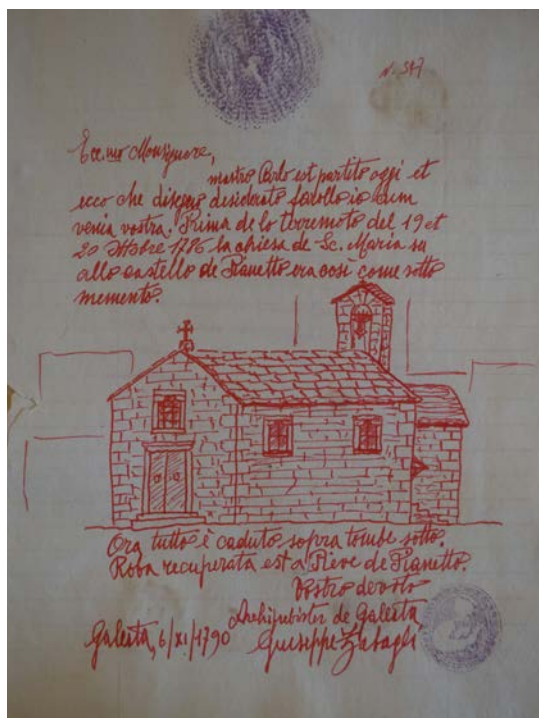 N. 517
Ecc.mo Monsignore,
mastro Carlo est partito oggi et
ecco che disegno desiderato farollo io cum
venia vostra. Prima de lo terremoto del 19 et
20 Ottobre 1786 la chiesa de Sc. Maria su
allo castello de Pianetto era così come sotto
memento.
Ora tutto è caduto sopra tombe sotto.
Roba recuperata est a Pieve de Pianetto.
Vostro devoto
Archipresbiter de Galeata,
Galeata, 6/XI/1790 Giuseppe Zabagli